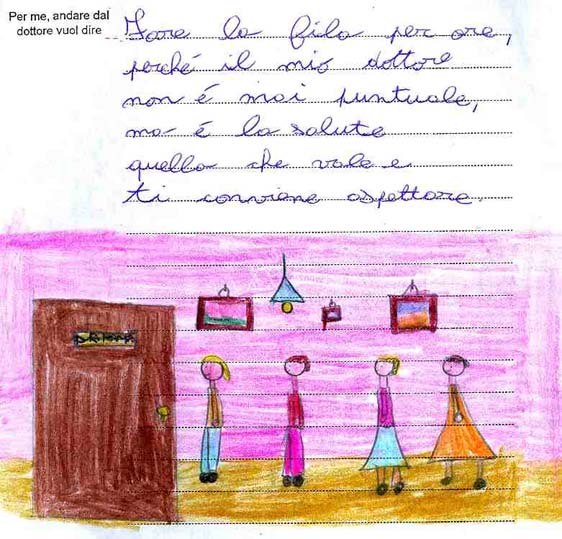 Per me, andare dal
dottore vuol dire
Fare la fila per ore,
perché il mio dottore
non é mai puntuale,
ma é la salute
quello che vale e
ti conviene aspettare.